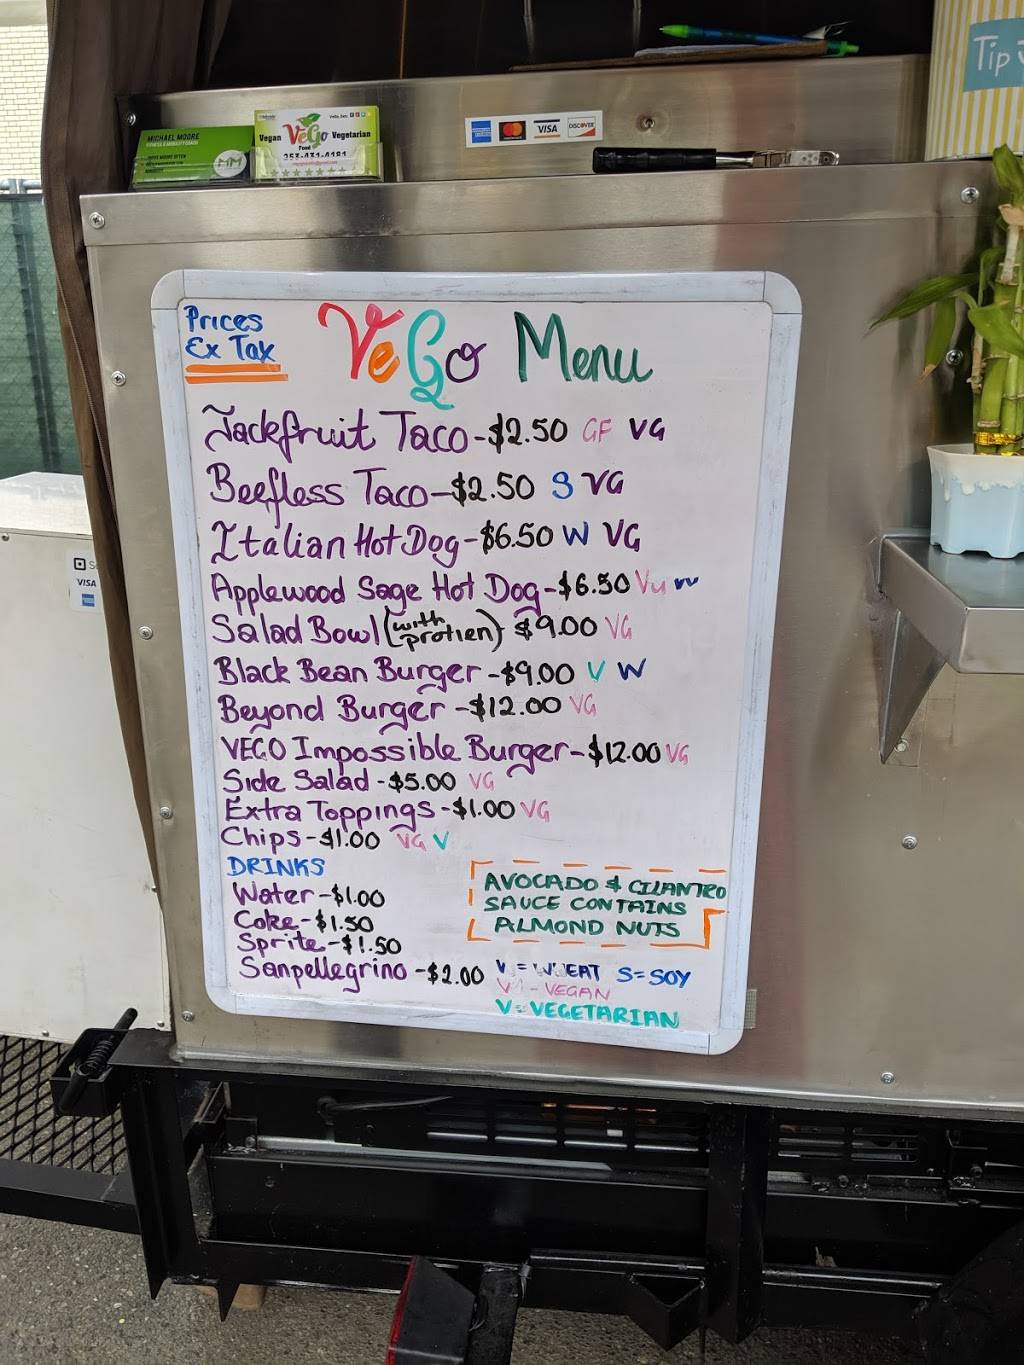 MICHAEL MOORE
Vegan VeGo Vegetarian
Food
253-431-4181
VISA
DISCOVER
Tip
VISA
Prices
Ex Tax
VeGo Menu
Jackfruit Taco-$2.50 GF VG
Beefless Taco-$2.50 S VG
Italian Hot Dog-$6.50 W VG
Applewood Sage Hot Dog-$6.50 VG W
Salad Bowl (with protien) $9.00 VG
Black Bean Burger-$9.00 V W
Beyond Burger-$12.00 VG
VEGO Impossible Burger-$12.00 VG
Side Salad-$5.00 VG
Extra Toppings-$1.00 VG
Chips-$1.00 VG V
DRINKS
Water-$1.00
Coke-$1.50
Sprite-$1.50
Sanpellegrino-$2.00
AVOCADO & CILANTRO
SAUCE CONTAINS
ALMOND NUTS
W = WHEAT S=SOY
VG - VEGAN
V=VEGETARIAN